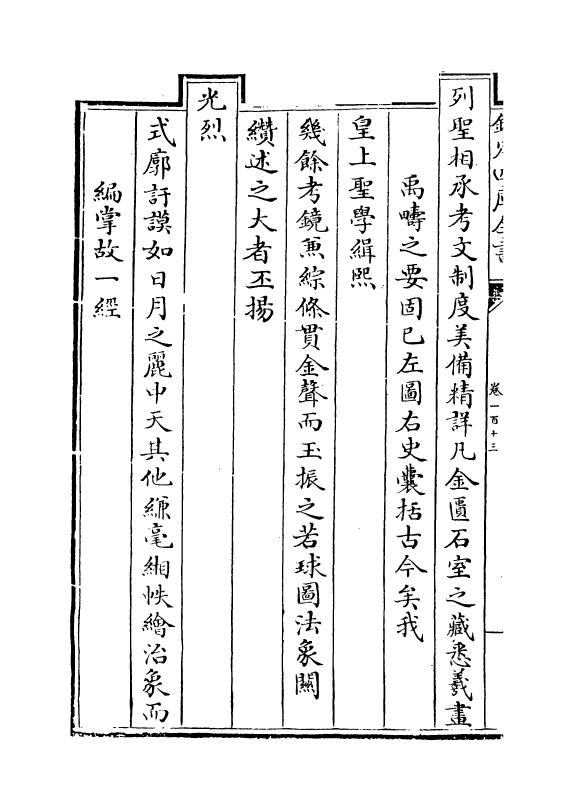 欽定四庫全書
卷一百十三
列聖相承考文制度美備精詳凡金匱石室之藏悉羲畫
禹疇之要固已左圖右史囊括古今矣我
皇上聖學緝熙
幾餘考鏡兼綜條貫金聲而玉振之若球圖法象闗
纘述之大者丕揚
光烈
式廓訏謨如日月之麗中天其他縑毫緗帙繪治象而
編掌故一經